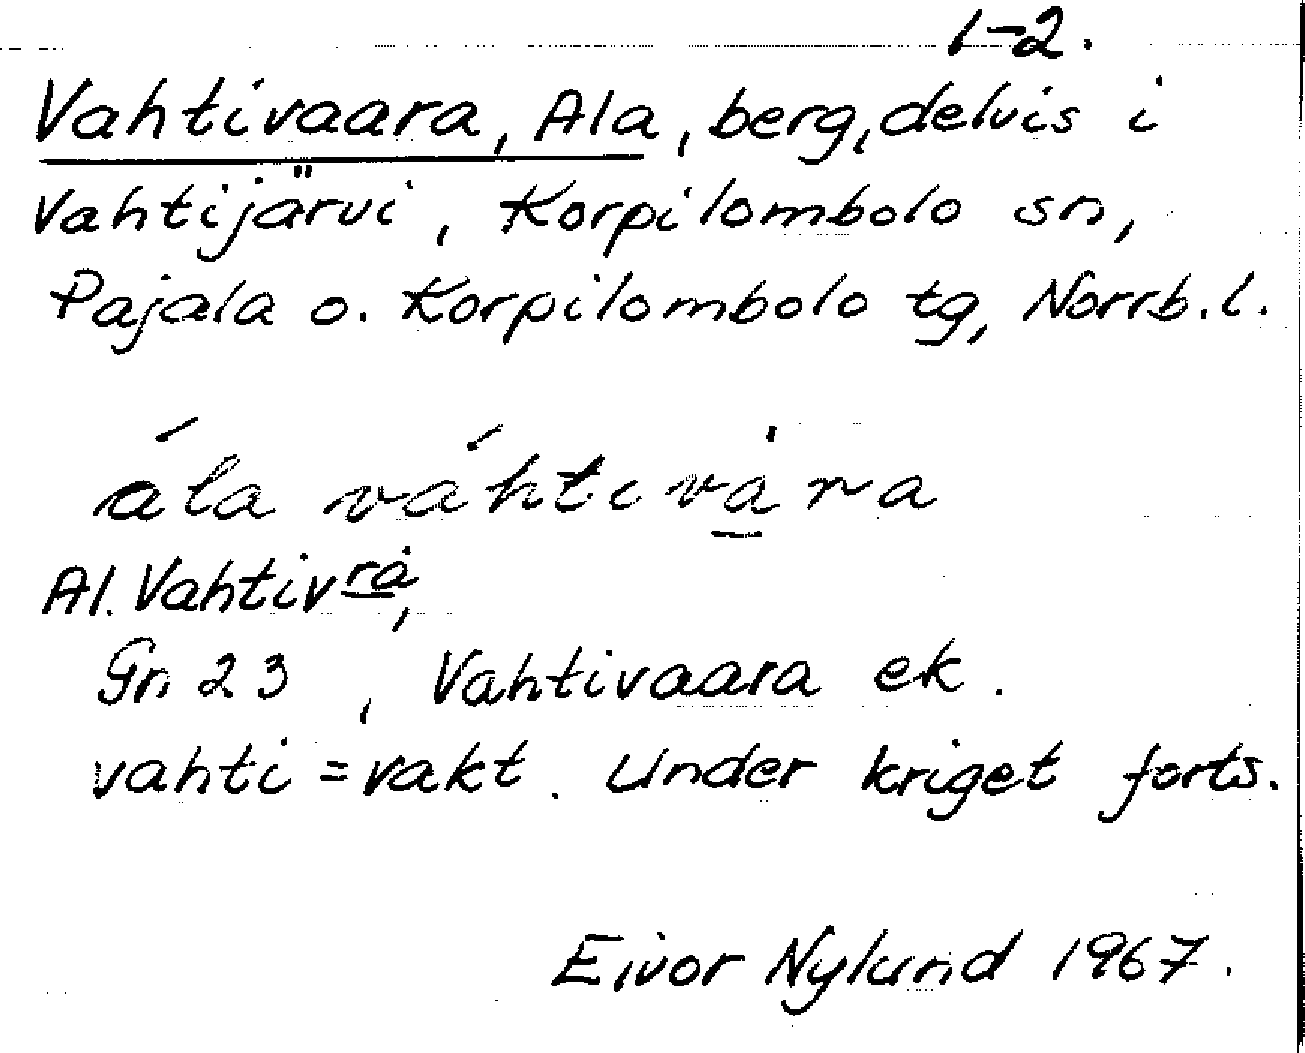 1-2.
Vahtivaara, Ala, berg, delvis i
Vahtijärvi, Korpilombolo sn,
Pajala o. Korpilombolo tg, Norrb. l.
ála váhtivà̱ra
Al. Vahtivrå,
Gn 23, Vahtivaara ek.
vahti = vakt. Under kriget forts.
Eivor Nylund 1967.